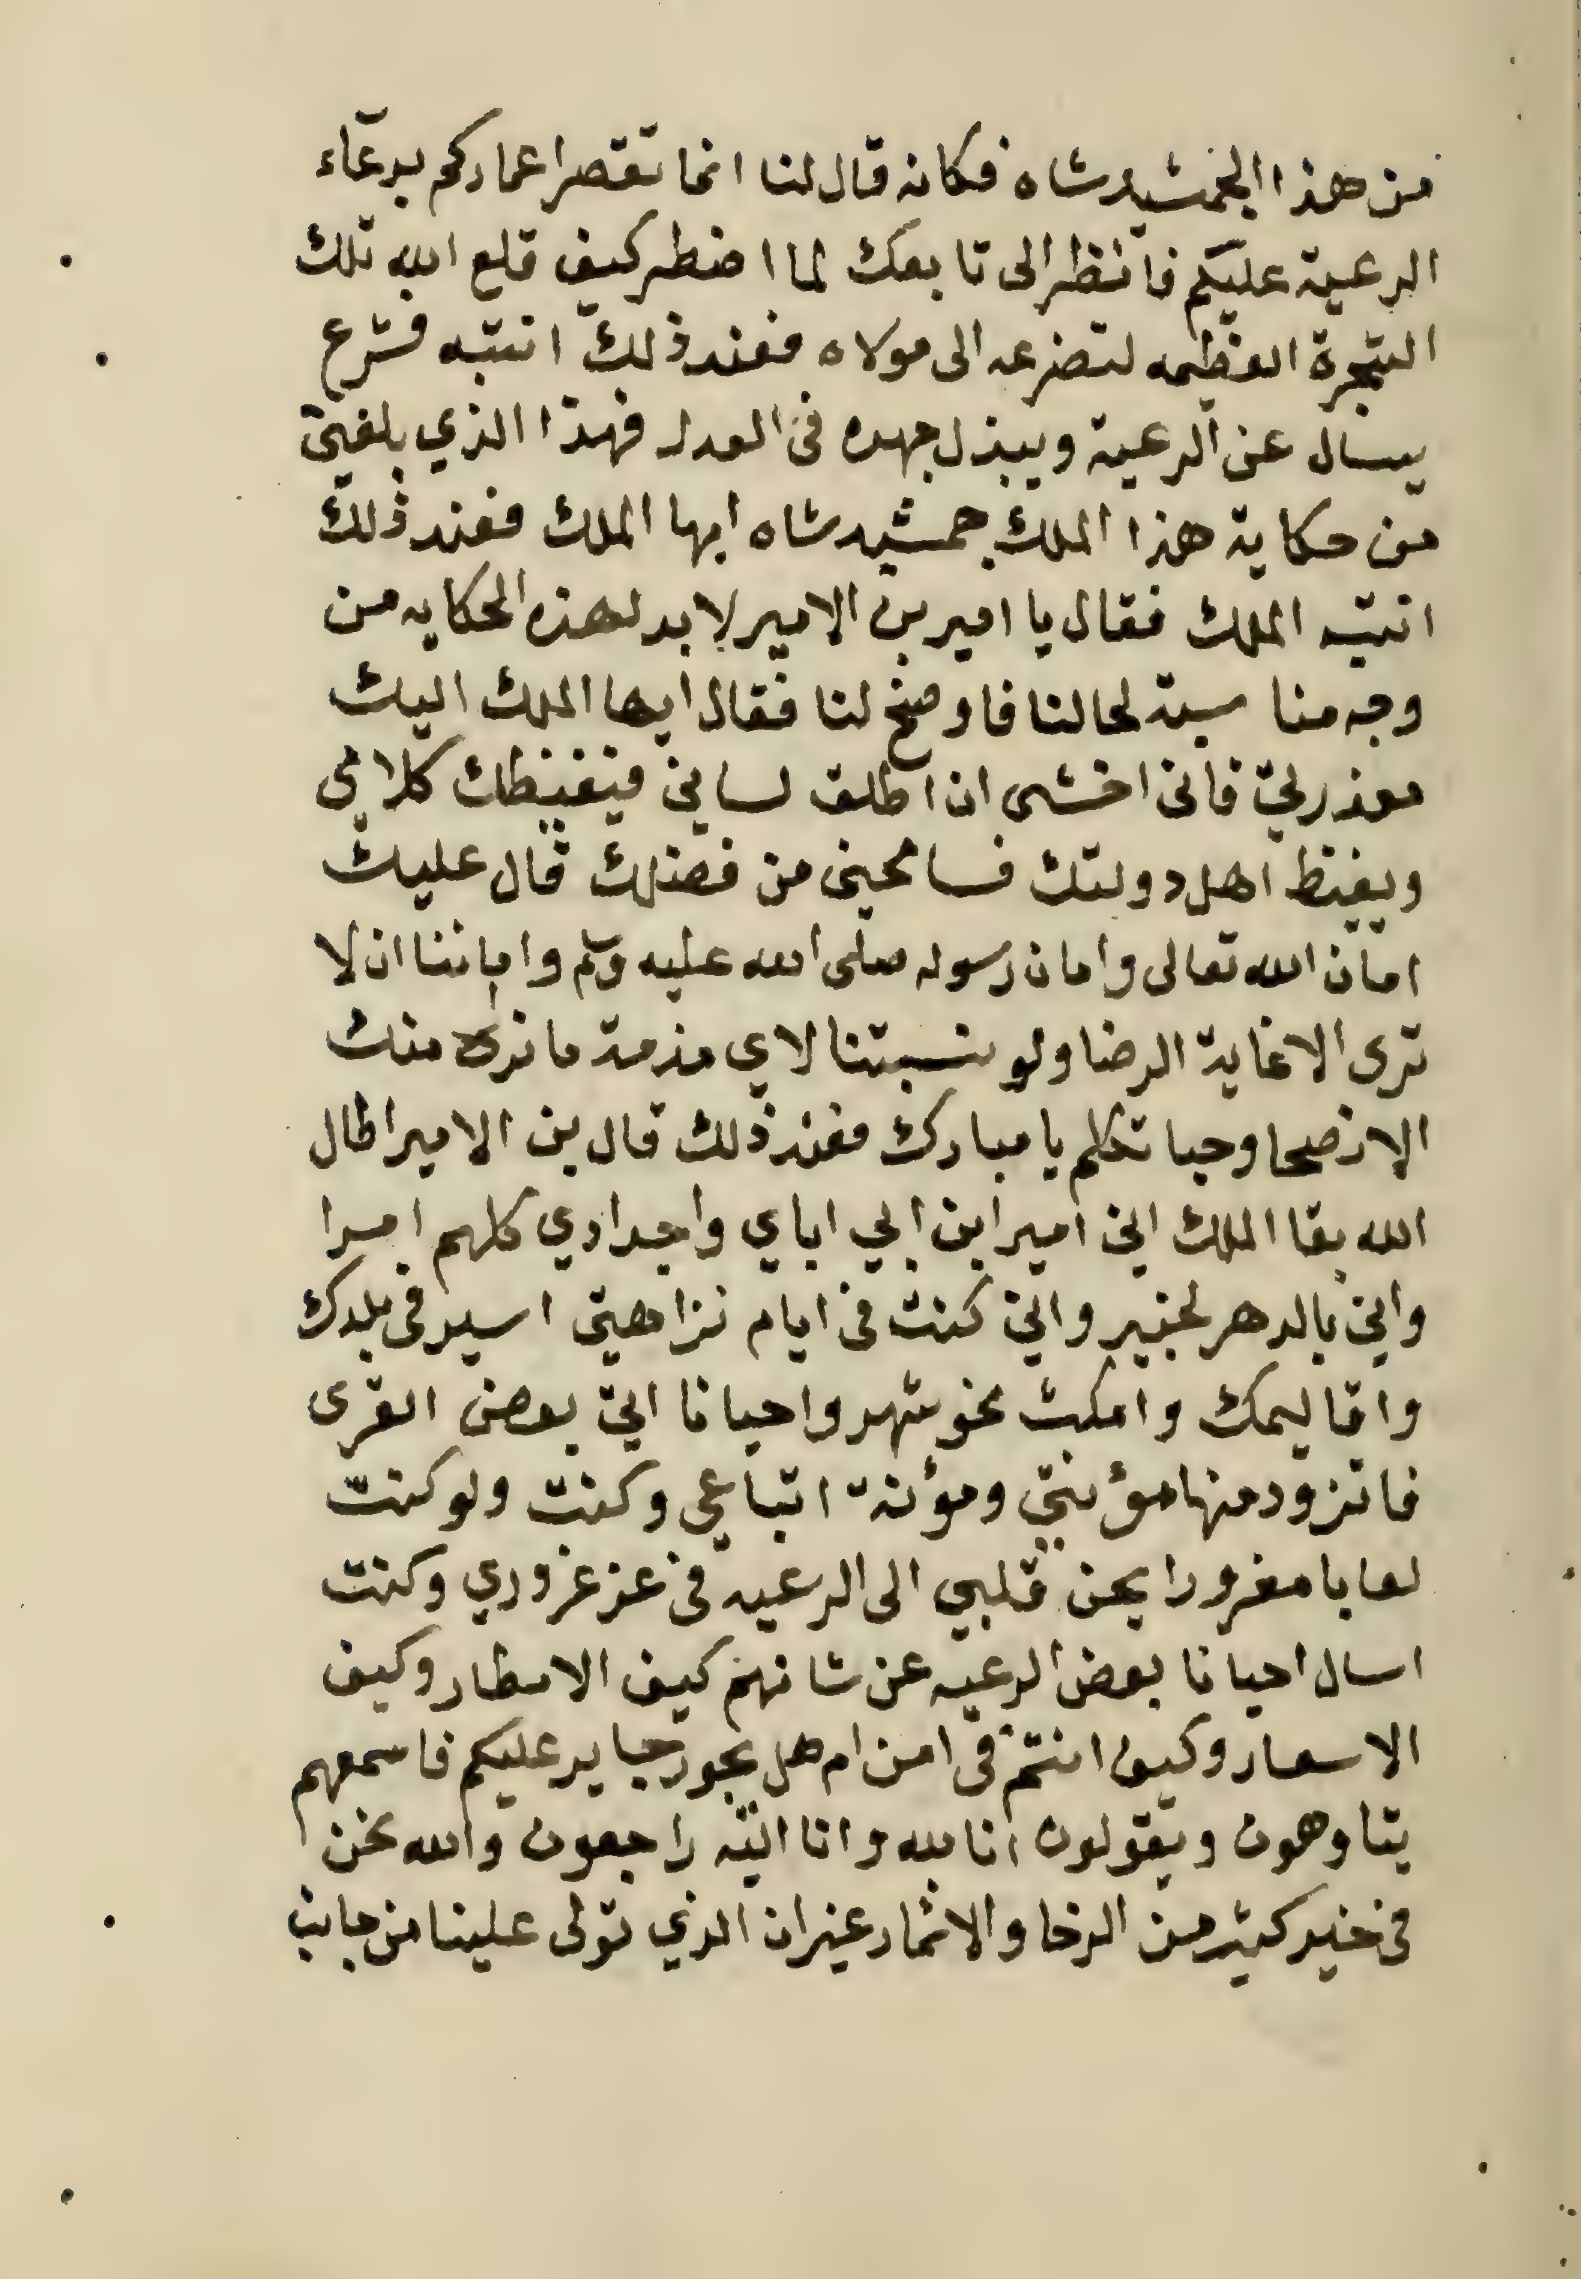 من هذا الجمشيد شاه فكانه قال لنا انما تقصر اعماركم بدعاء
الرعية عليكم فانظر الى تابعك لما اضطر كيف قلع الله تلك
الشجرة العظيمه لتضرعه الى مولاه فعند ذلك انتبه فشرع
يسال عن الرعية ويبذل جهده في العدل فهذا الذي بلغني
من حكاية هذا الملك جمشيد شاه ايها الملك فعند ذلك
انتبه الملك فقال يا امير بن الامير لا بد لهذه الحكايه من
وجه منا سبة لحالنا فاوضح لنا فقال ايها الملك اليك
معذرتي فاني اخشى ان اطلق لساني فيغيظك كلامي
ويغيظ اهل دولتك فسامحني من فضلك قال عليك
امان الله تعالى وامان رسوله صلى الله عليه وسلم واماننا ان لا
ترى الا غاية الرضا ولو نسبتنا لاي مذمة ما نراه منك
الا نصحا وحبا تكلم يا مبارك فعند ذلك قال بن الامير اطال
الله بقا الملك اني امير ابن ابي اباي واجدادي كلهم امرا
واني بالدهر لخبير واني كنت في ايام نزاهتي اسير في بلدك
واقاليمك وامكث نحو شهر واحيانا اتي بعض القرى
فاتزود منها مؤنتي ومؤنة اتباعي وكنت ولو كنت
لعابا مغرورا يحن قلبي الى الرعيه في عز غروري وكنت
اسال احيانا بعض الرعيه عن شانهم كيف الامطار وكيف
الاسعار وكيف انتم في امن ام هل يجور جاير عليكم فاسمعهم
يتاوهون ويقولون انا لله وانا اليه راجعون والله نحن
في خير كثير من الرخا والاثمار غير ان الذي تولى علينا من جانب